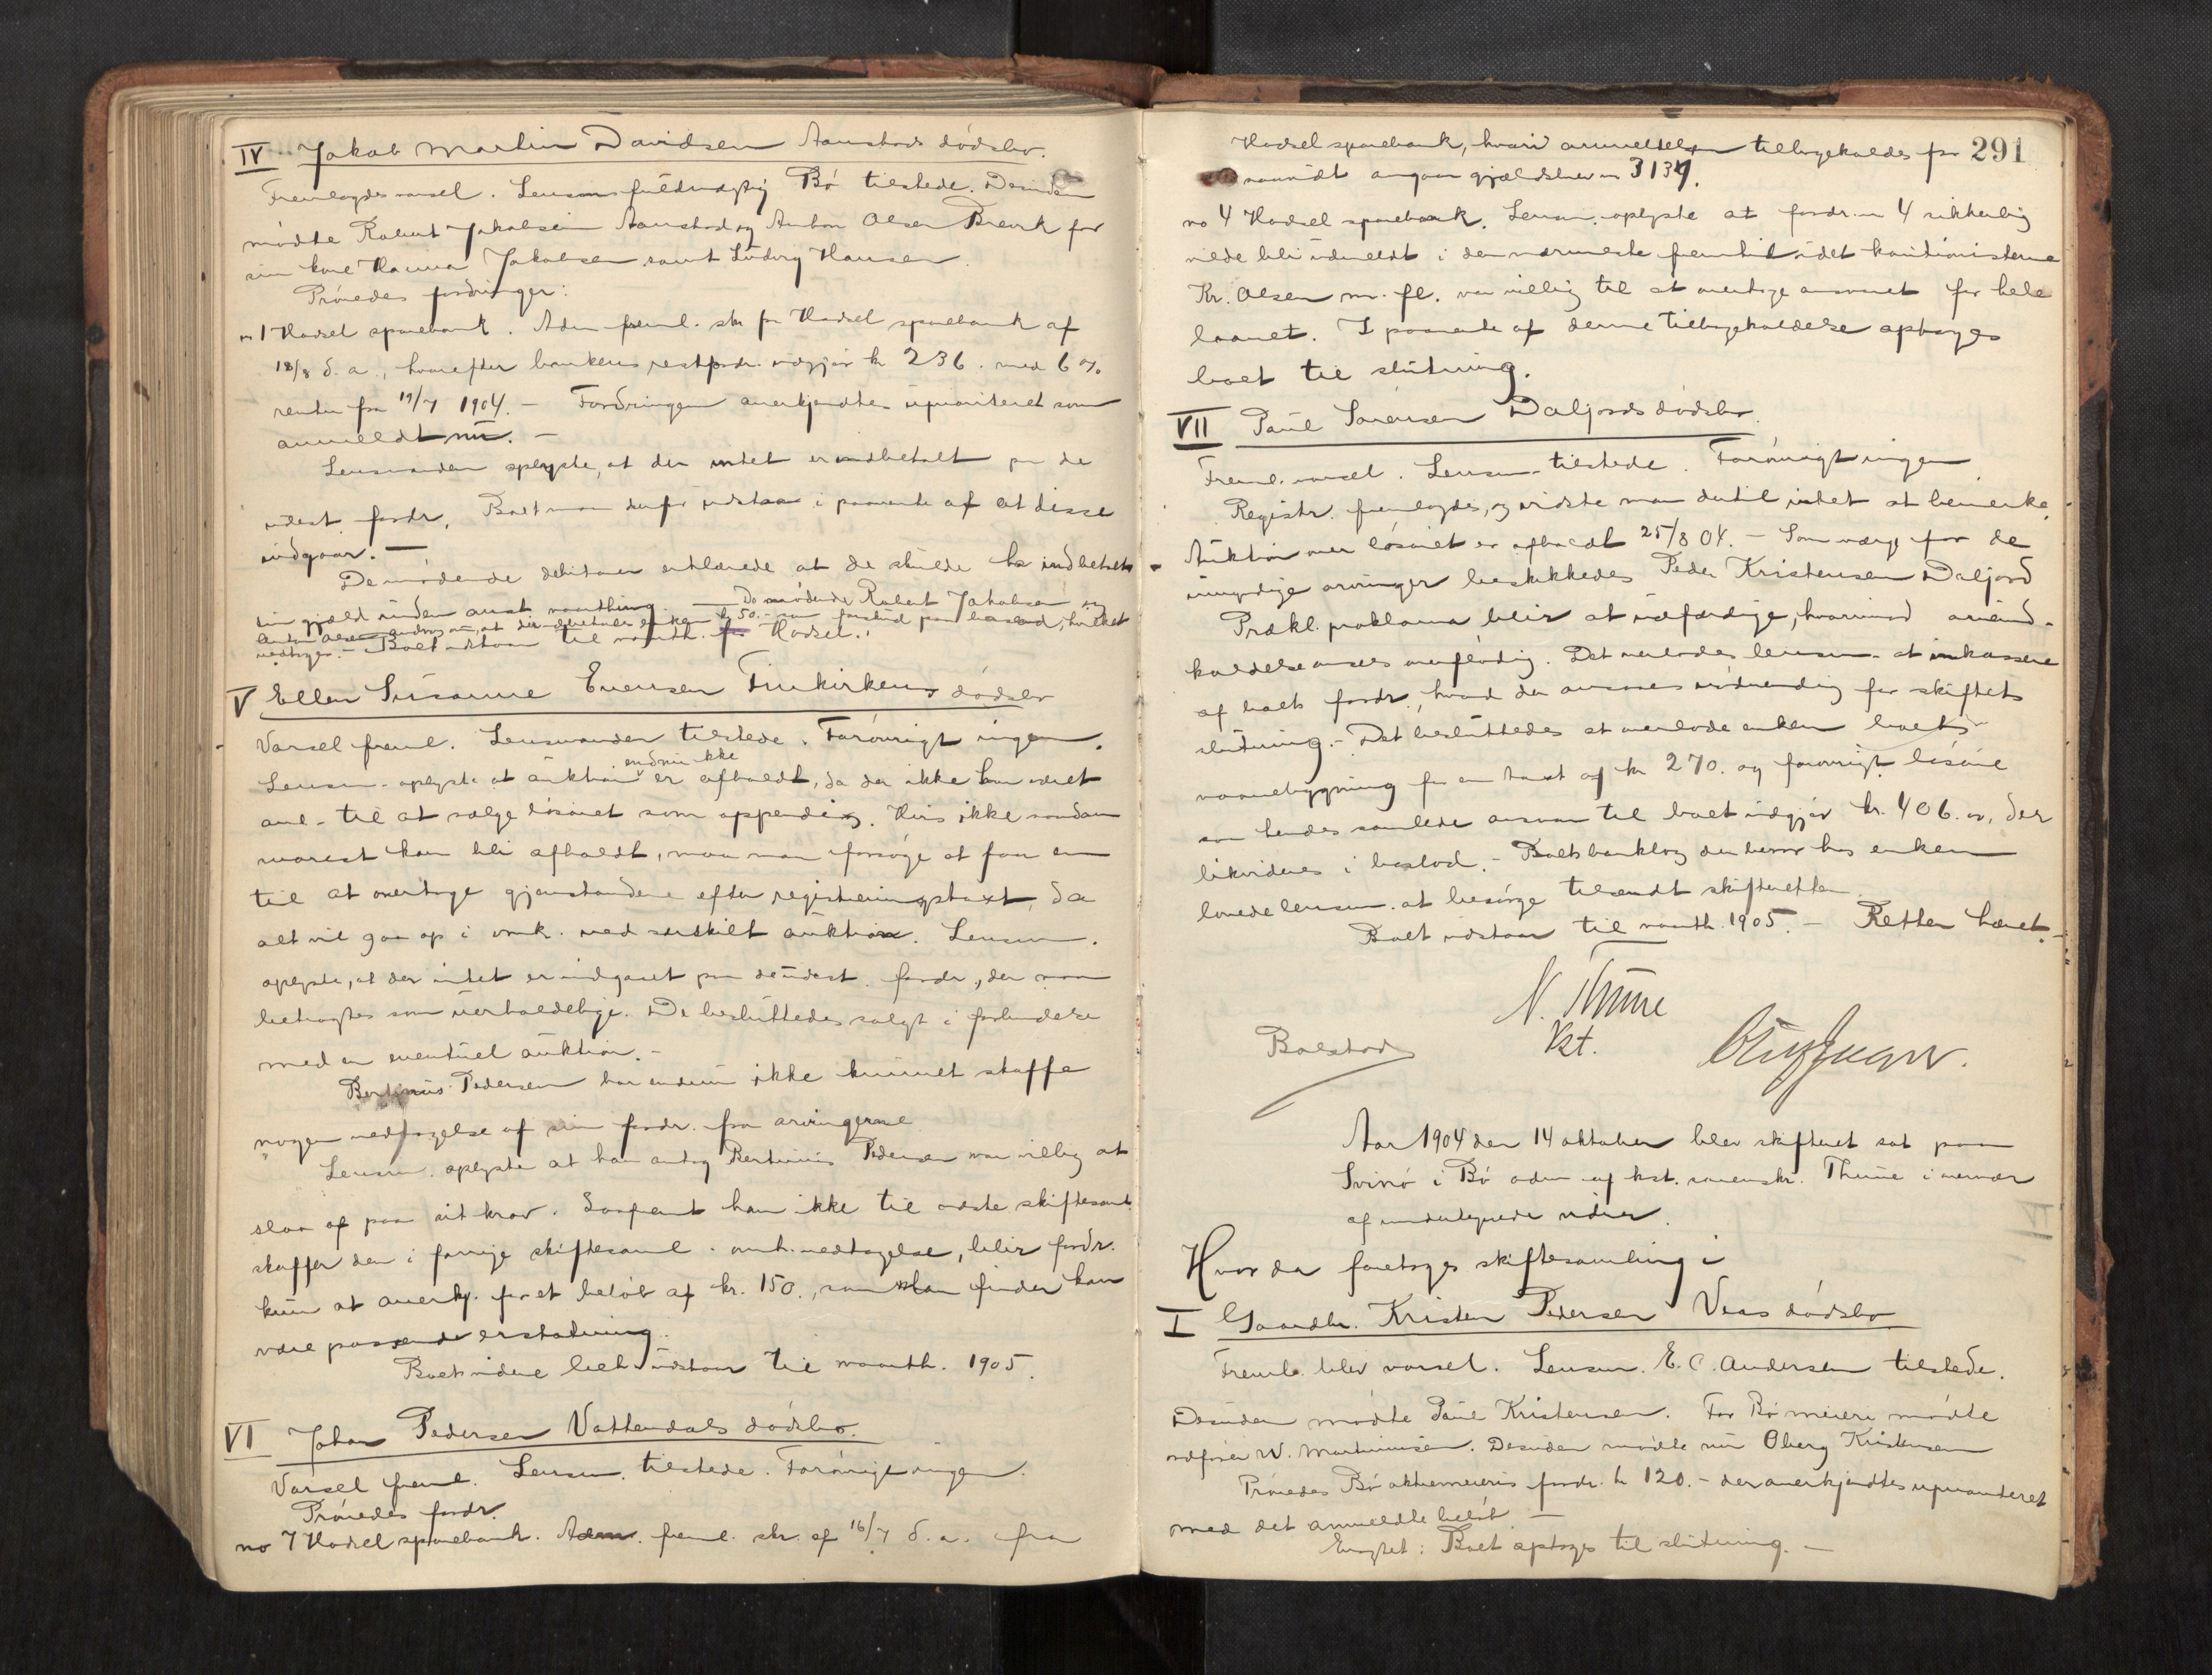 IV Jakob Martin Davidsen Aanstads dødsbo.
Fremlagdes varsel. Lensmsfuldmægtig Bø tilstede. Desuden
mødte Robert Jakobsen Aanstad og Anton Olsen Brevik for
sin kone Hanna Jakobsen samt Ludvig Hansen.
Prøvedes fordringer:
no 1 Hadsel sparebank. Adm. freml. skr fra Hadsel sparebank af
18/8 d. a., hvorefter bankens restfordr. udgjør kr 236. med 6 %
renter fra 19/7 1904. – Fordringen anerkjendtes uprioriteret som
anmeldt nu. –
Lensmanden oplyste, at der intet er indbetalt paa de
udest. fordr. Boet maa derfor udstaa i paavente af at disse
indgaar. –
De mødende debitorer erklærede at de skulde ha indbetalt
sin gjæld inden aarets vaarthing. – De mødende Robert Jakobsen og
Anton Olsen at der udbetales enken kr 50.- som forskud paa boslod, hvilket
vedtoges. – Boet udstaar til vaarth. Hadsel.
V Ellen Susanne Evensen Finkirkens dødsbo
Varsel freml. Lensmanden tilstede. Forøvrigt ingen.
endnu ikke
Lensm. oplyste at auktion er afholdt, da der ikke har været
anl. til at sælge løsøret som appendix. Hvis ikke saadan
snarest kan bli afholdt, maa man forsøge at faa en
til at overtage gjenstandene efter registreringstaxt, da
alt vil gaa op i omk. ved særskilt auktion. Lensm.
oplyste, at der intet er indgaaet paa de udest. fordr., der maa
betragtes som uerholdelige. De besluttedes solgt i forbindelse
med en eventuel auktion. –
Bertinius Pedersen har endnu ikke kunnet skaffe
nogen vedtagelse af sin fordr. fra arvingerne
Lensm. oplyste at han antog Bertinius Pedersen var villig at
slaa af paa sit krav. Saafremt han ikke til næste skiftesaml.
skaffer den i forrige skiftesaml. omh. vedtagelse, blir fordr.
kun at anerkj. for et beløb af kr. 150., som man finder kan
være passende erstatning.
Boets videre beh. udstaar til vaarth. 1905.
VI Johan Pedersen Vattendals dødsbo.
Varsel freml. Lensm. tilstede. Forøvrigt ingen.
Prøvedes fordr.
no 7 Hadsel sparebank. Adm. freml. skr. af 16/7 d. a. fra
291
Hadsel sparebank, hvori anmeldelsen tilbagekaldes for
saavidt angaar gjældsbrev no 3137.
no 4 Hadsel sparebank. Lensm. oplyste at fordr. no 4 sikkerlig
vilde bli udmeldt i den nærmeste fremtid idet kautionisterne
Kr. Olsen m. fl. var villig til at overtage ansvaret for hele
laanet. I paavente af denne tilbagekaldelse optoges
boet til slutning.
VII Paul Sørensen Daljords dødsbo.
Freml. varsel. Lensm. tilstede. Forøvrigt ingen.
Registr. fremlagdes, og vidste man dertil intet at bemerke.
Auktion over løsøret er afholdt 25/8 04. – Som værge for de
umyndige arvinger beskikkedes Peder Kristensen Daljord
Prækl. proklama blir at udfærdige, hvorimod arveind-
kaldelse ansees overflødig. Det overlodes lensm. at inkassere
af boets fordr., hvad der ansaaes nødvendig for skiftets
slutning. – Det besluttedes at overlade enken boets
vaanebygning for en taxt af kr 270. og forøvrigt løsøre
saa hendes samlede ansvar til boet udgjør kr. 406. , der
likvideres i boslod. – Boets bankbog der beror hos enken
lovede lensm. at besørge tilsendt skifteretten.
Boet udstaar til vaarth. 1905. – Retten hævet. –
N. Thune
kst.
Bolstad
Aar 1904 den 14 oktober blev skifteret sat paa
Svinø i Bø adm. af kst. sorenskr. Thune i nærvær
af undertegnede vidner.
Hvor da foretoges skiftesamling i
I Gaardbr. Kristen Pedersen Veas dødsbo
Freml. blev varsel. Lensm. E. C. Andersen tilstede.
Desuden mødte Paul Kristensen. For Bø meieri mødte
ordfører W. Martinussen. Desuden mødte nu Oberg Kristensen
Prøvedes Bø aktiemeieris fordr. kr 120. – der anerkjendtes uprioriteret
med det anmeldte beløb. –
Eragtet: Boet optoges til slutning. –